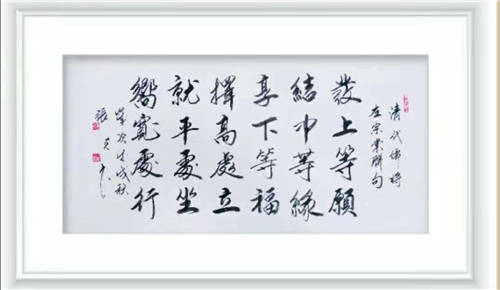 清代儒将
左宗棠聯句
發上等願
結中等緣
享下等福
擇高處立
就平處坐
嚮寬處行
歲次戊戌秋
張